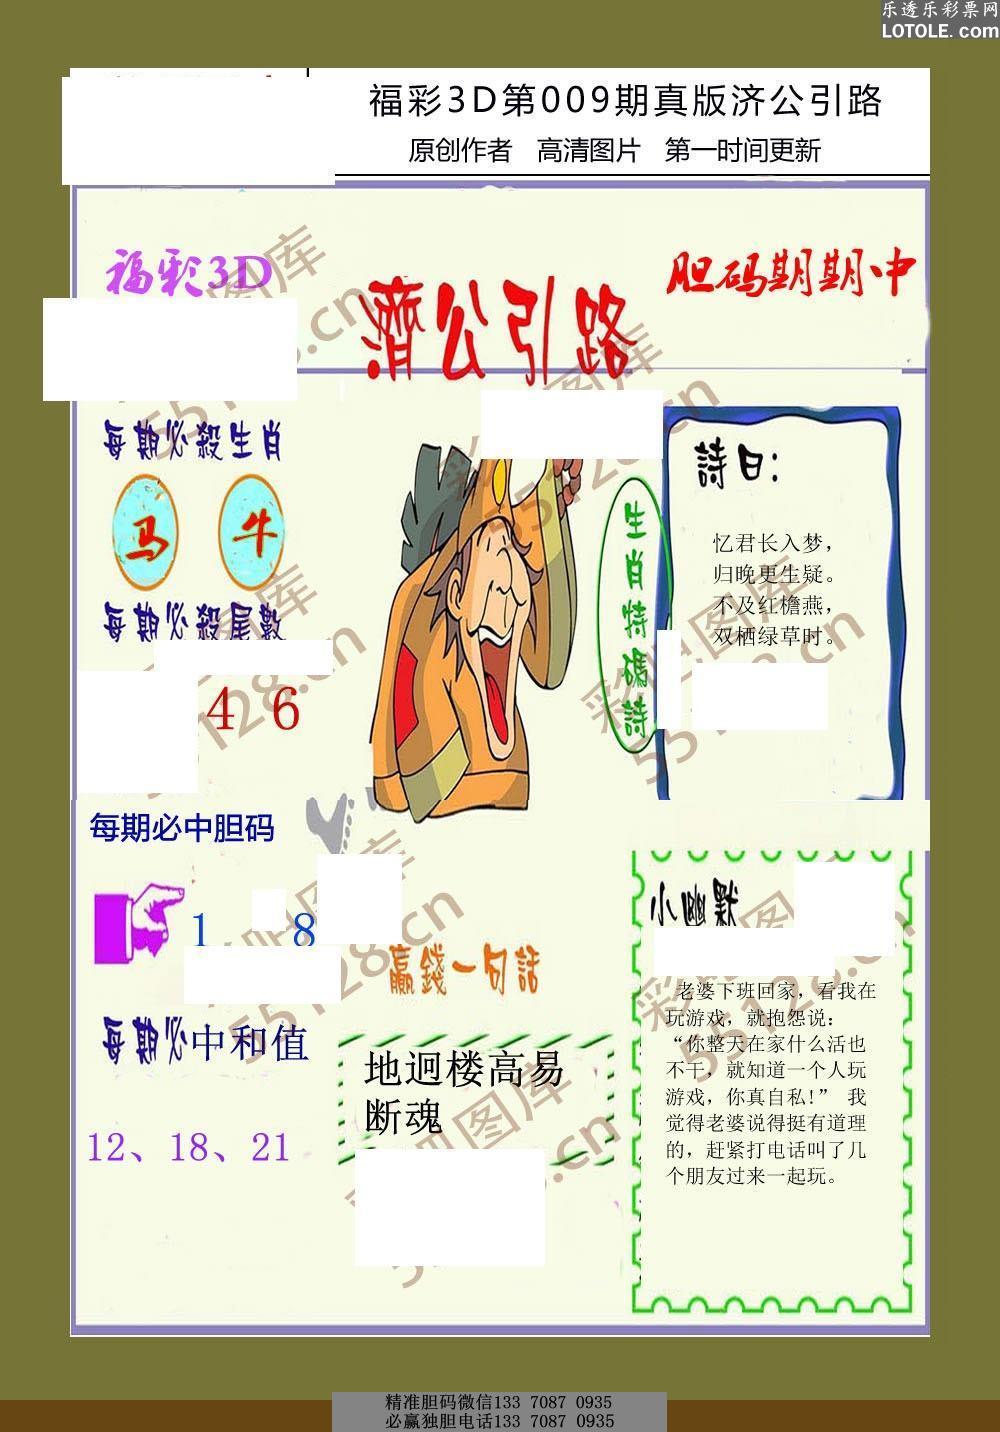 乐透乐彩票网
LOTOLE.com
福彩3D第009期真版济公引路
原创作者 高清图片 第一时间更新
福彩3D
濟公引路
胆码期期中
每期必殺生肖
马 牛
每期必殺尾數
4 6
生肖特碼詩
詩曰:
忆君长入梦，
归晚更生疑。
不及红檐燕，
双栖绿草时。
每期必中胆码
1 8
每期必中和值
12、18、21
贏錢一句話
地迥楼高易
断魂
小幽默
老婆下班回家，看我在
玩游戏，就抱怨说：
“你整天在家什么活也
不干，就知道一个人玩
游戏，你真自私！” 我
觉得老婆说得挺有道理
的，赶紧打电话叫了几
个朋友过来一起玩。
彩吧图库
55128.cn
精准胆码微信133 7087 0935
必赢独胆电话133 7087 0935